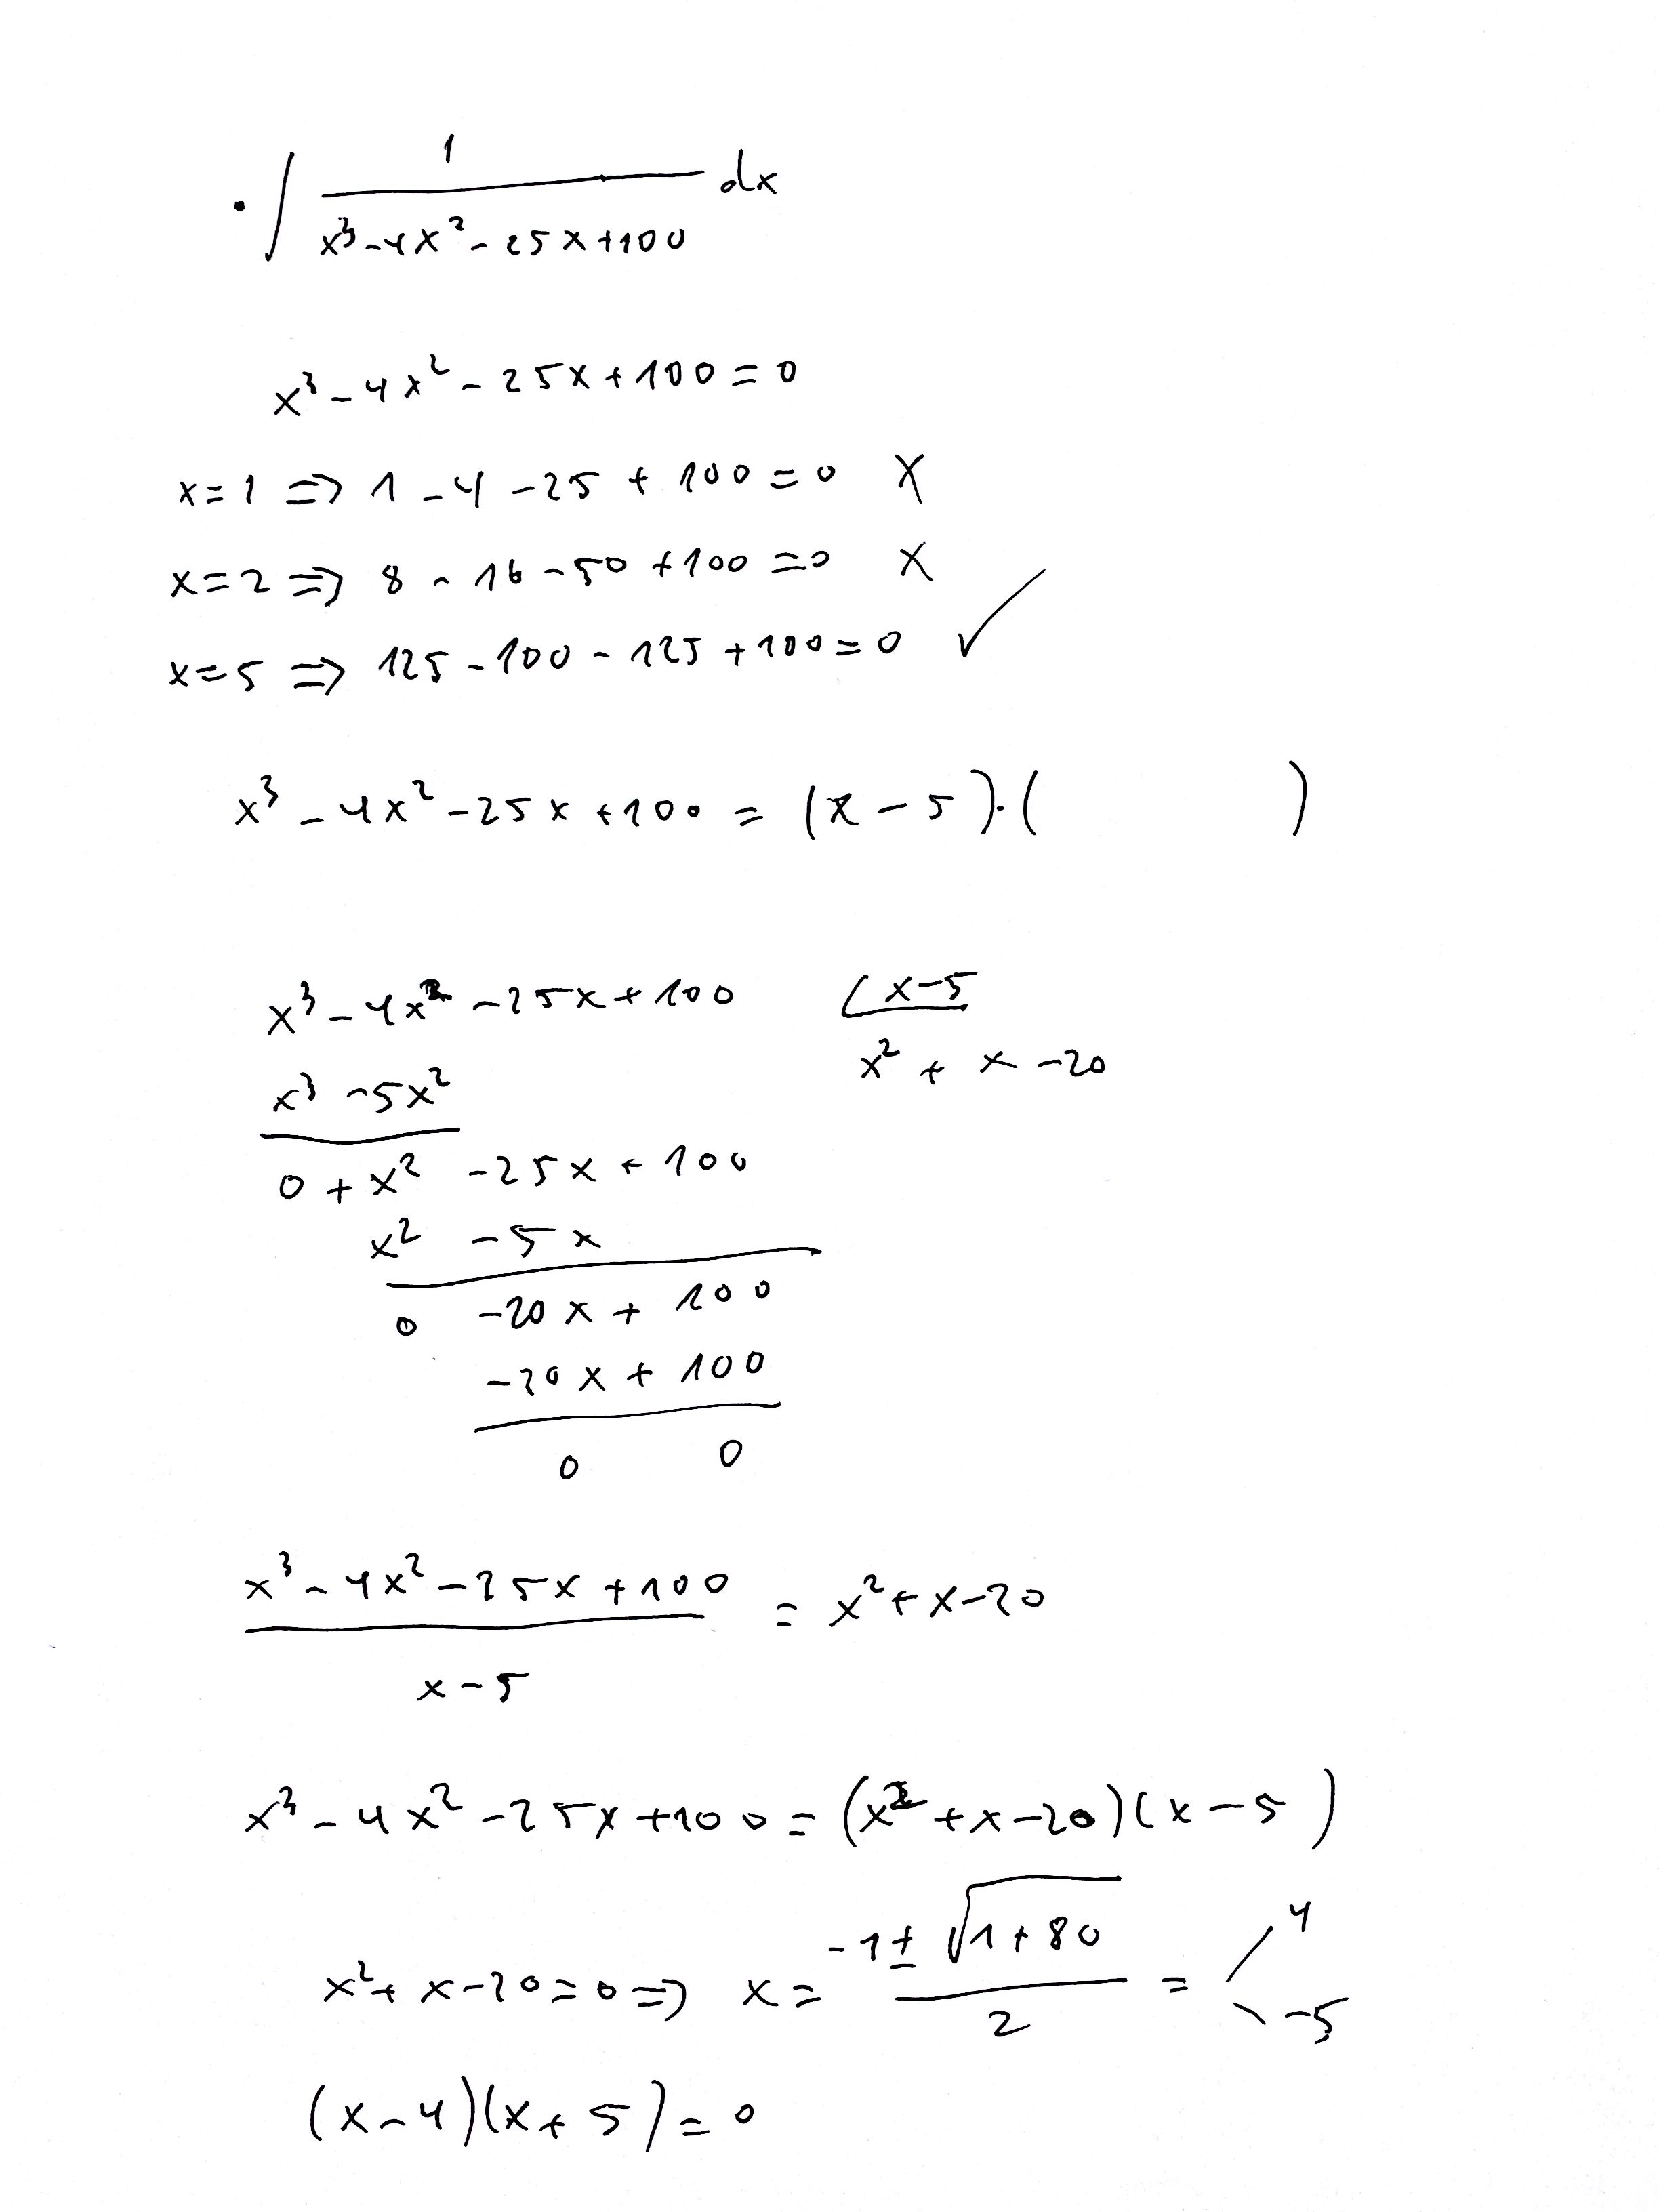 · ∫ 1 / (x³-4x²-25x+100) dx
x³-4x²-25x+100=0
x=1 => 1-4-25+100=0 X
x=2 => 8-16-50+100=0 X
x=5 => 125-100-125+100=0 ✓
x³-4x²-25x+100 = (x-5)·( )
x³-4x²-25x+100 x-5
x³-5x² x²+x-20
0+x²-25x+100
x²-5x
0 -20x+100
-20x+100
0 0
(x³-4x²-25x+100) / (x-5) = x²+x-20
x³-4x²-25x+100=(x²+x-20)(x-5)
x²+x-20=0 => x = (-1±√(1+80)) / 2 = 4 -5
(x-4)(x+5)=0